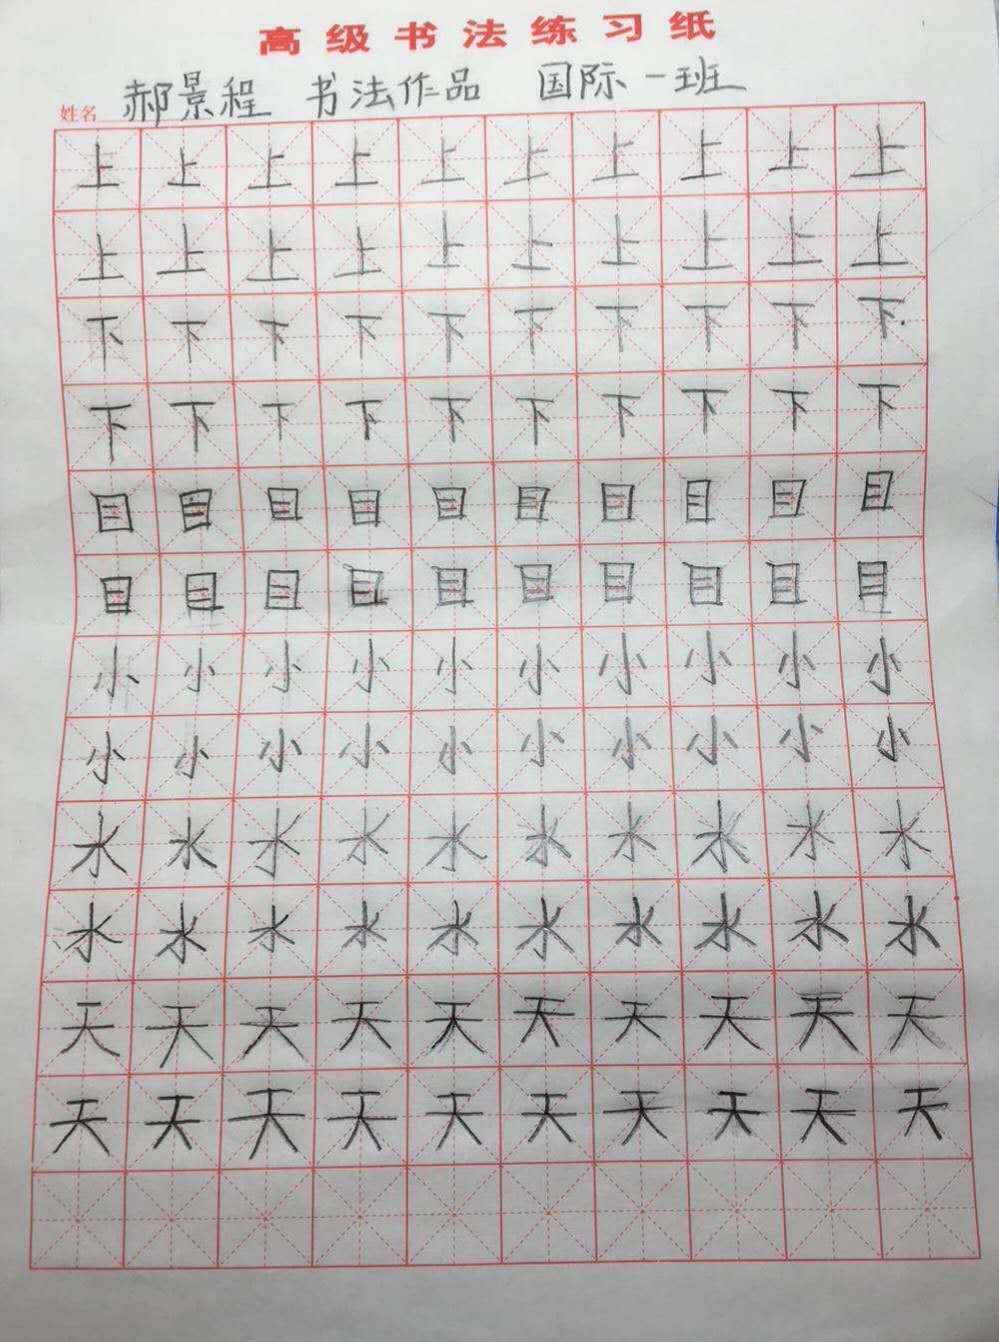 高级书法练习纸
姓名 郝景程 书法作品 国际一班
上上上上上上上上上上
上上上上上上上上上上
下下下下下下下下下下
下下下下下下下下下下
目目目目目目目目目目
目目目目目目目目目目
小小小小小小小小小小
小小小小小小小小小小
水水水水水水水水水水
水水水水水水水水水水
天天天天天天天天天天
天天天天天天天天天天